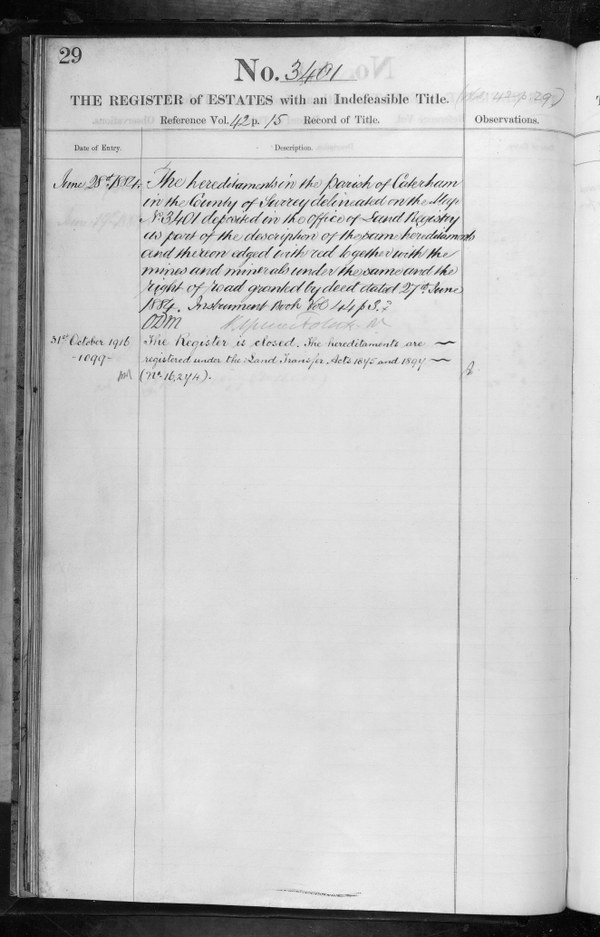 29
No. 3401
THE REGISTER of ESTATES with an Indefeasible Title.
Reference Vol. 42 p. 15 Record of Title.
Observations.
Date of Entry.
Description.
June 28th 1884.
The hereditaments in the parish of Caterham
in the County of Surrey delineated on the Map
No 3401 deposited in the office of Land Registry
as part of the description of the same hereditaments
and thereon edged with red together with the
mines and minerals under the same and the
right of road granted by deed dated 27th June
1884. Instrument Book Vol 144 p 37
31st October 1916
-1099-
The Register is closed. The hereditaments are
registered under the Land Transfer Acts 1875 and 1897
(No. 16,274).